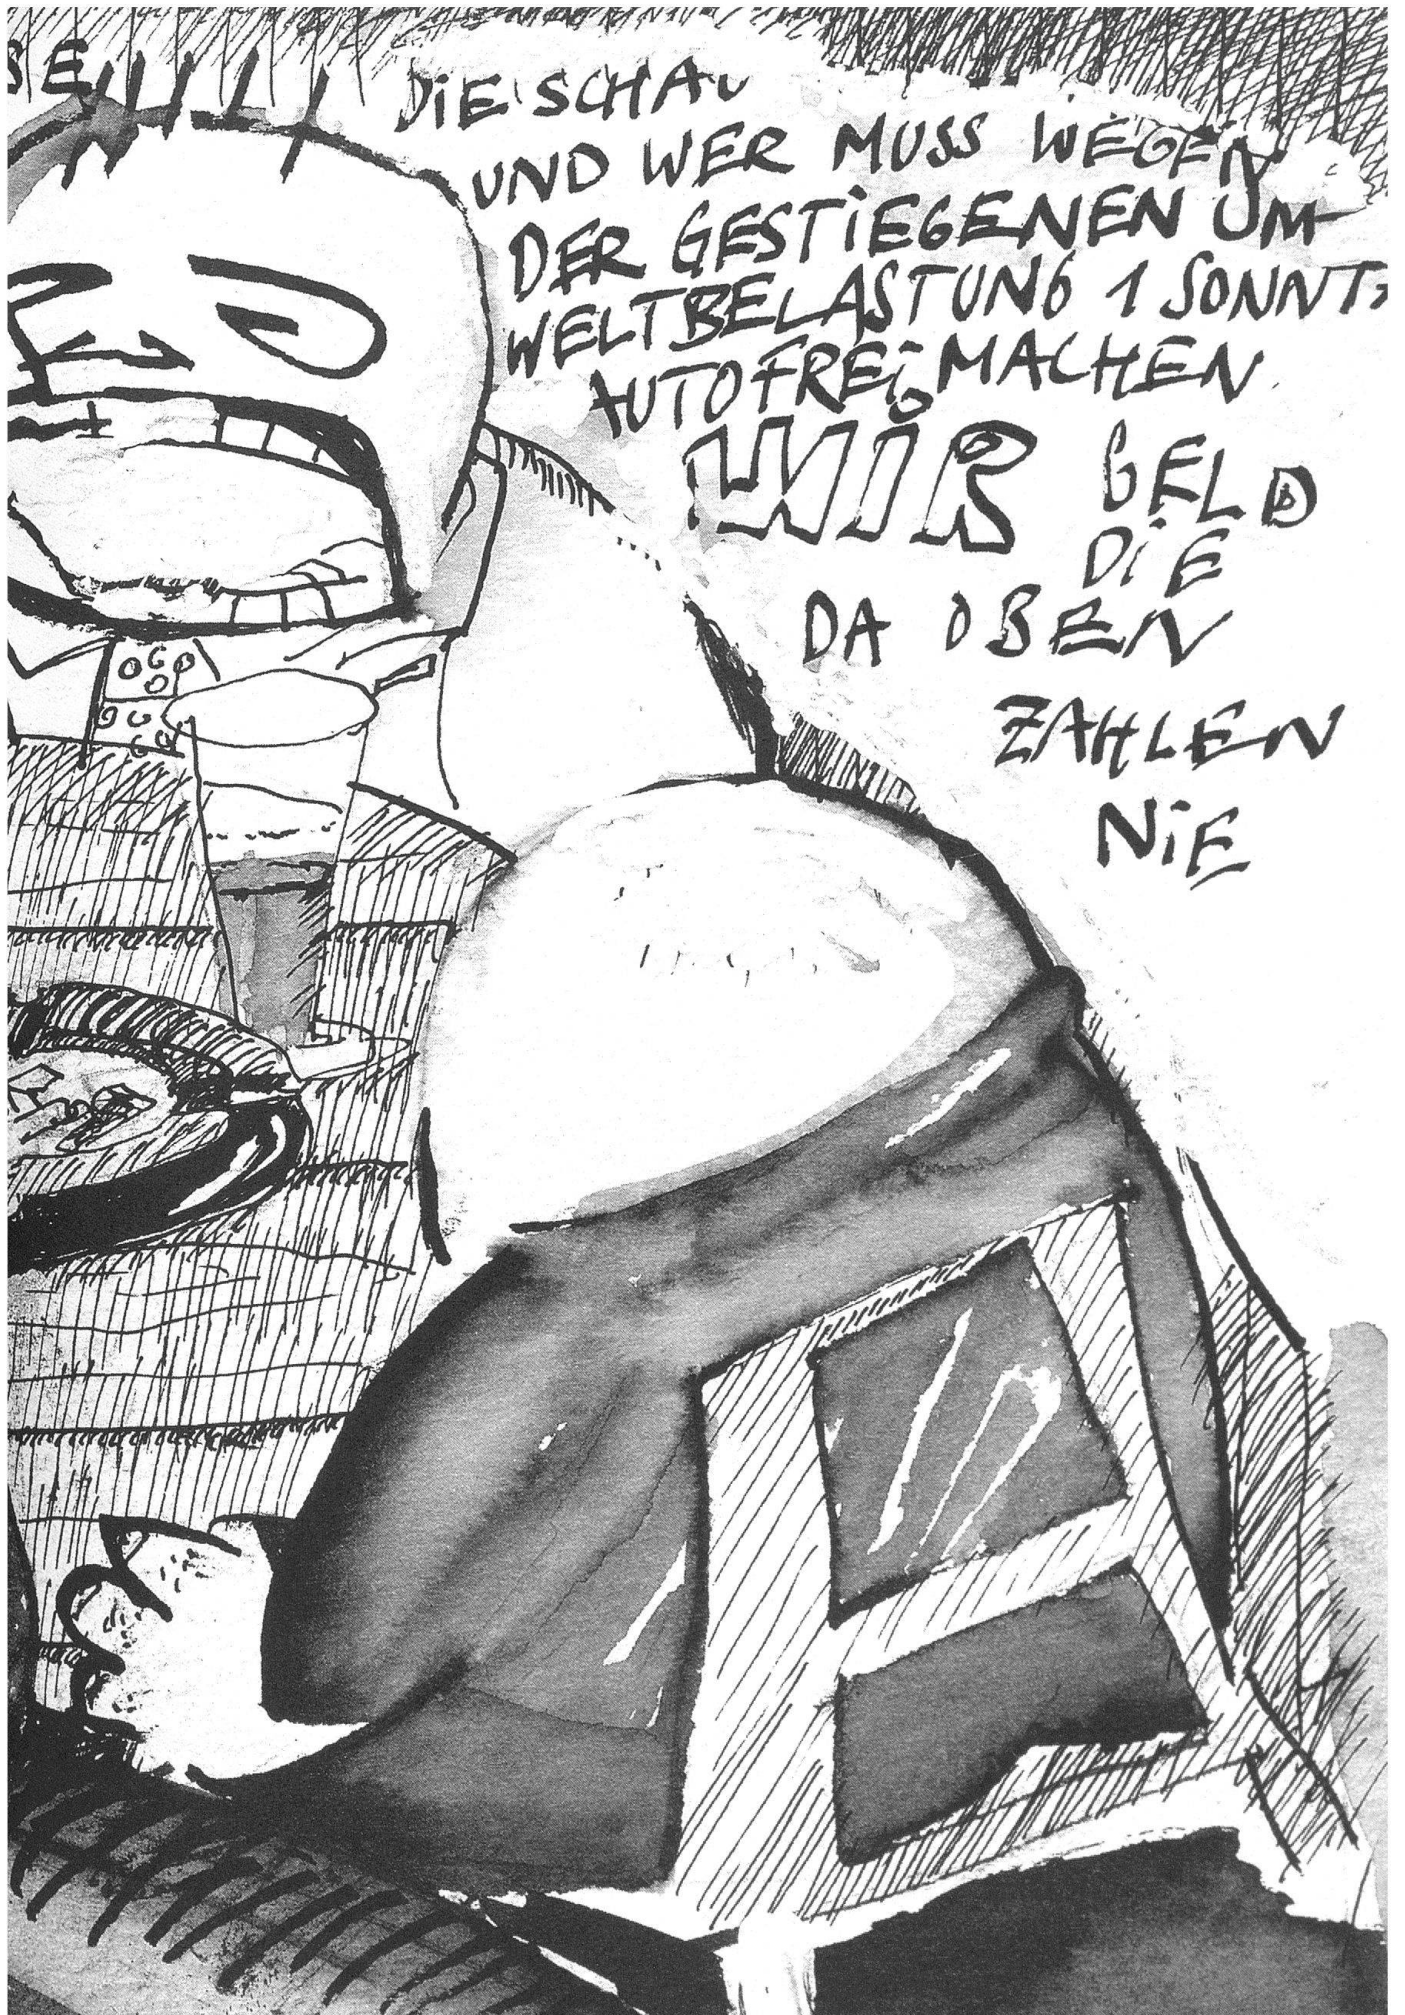 SE
DIE SCHAU
UND WER MUSS WEGEN
DER GESTIEGENEN UM-
WELTBELASTUNG 1 SONNT,
AUTOFREI MACHEN
WIR GELD
DIE
DA OBEN
ZAHLEN
NIE